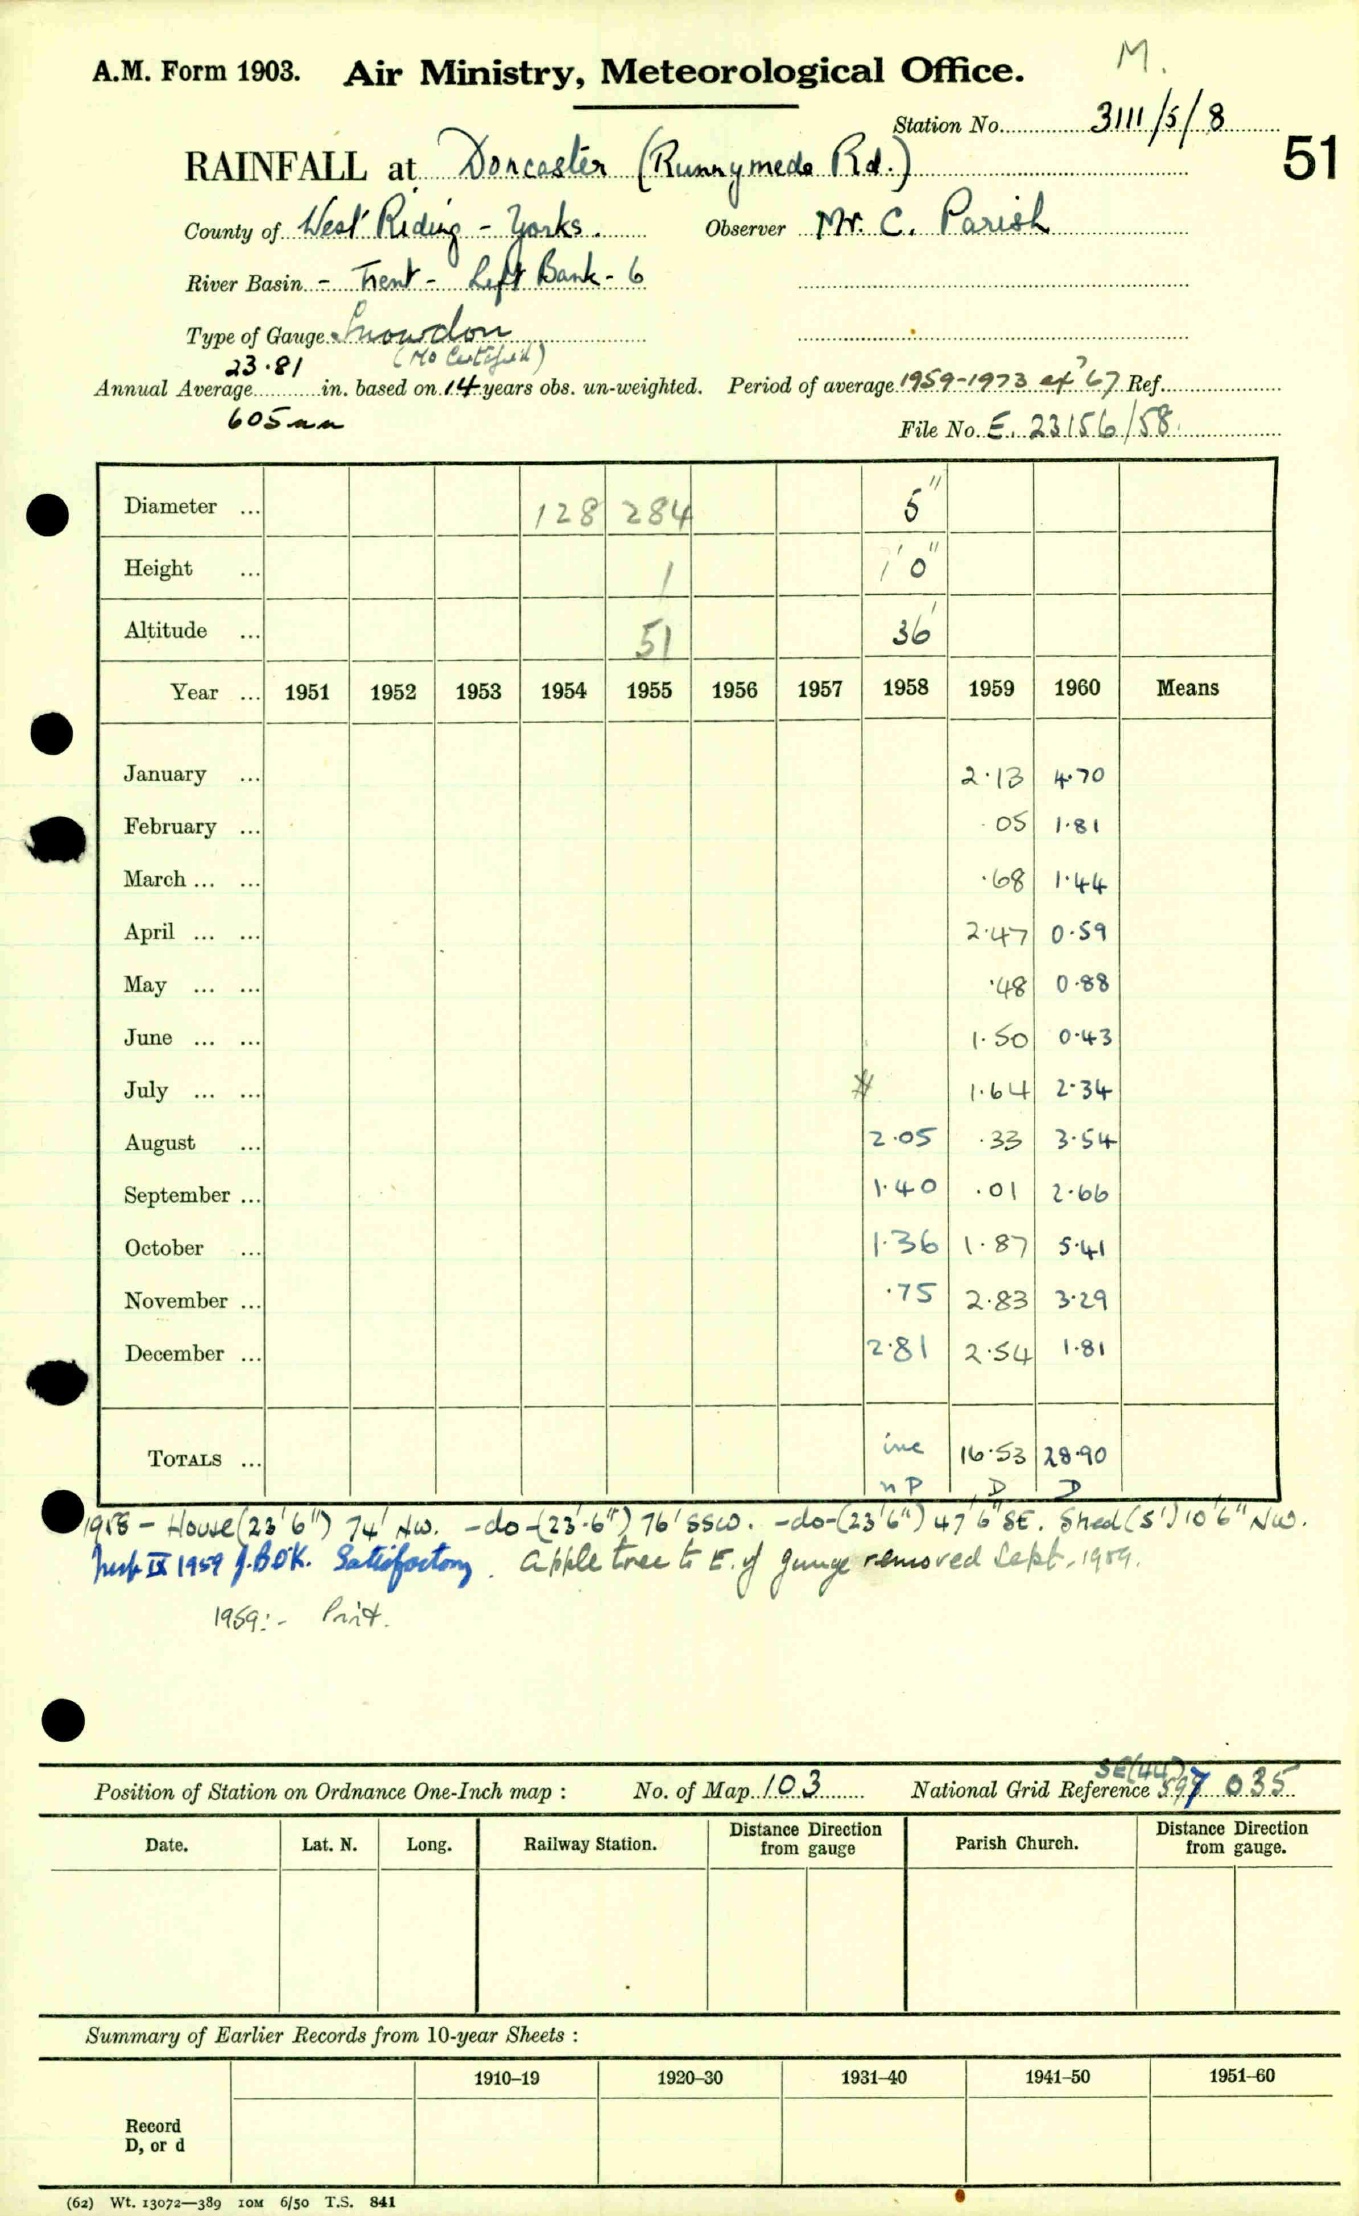 M.
A.M. Form 1903. Air Ministry, Meteorological Office.
Station No. 3111/5/8
51
RAINFALL at Doncaster (Runnymede Rd.)
County of West Riding - Yorks. Observer Mr. C. Parish
River Basin - Trent - Left Bank - 6
Type of Gauge Snowdon
(MO Certified)
Annual Average 23.81 in. based on 14 years obs. un-weighted. Period of average 1959-1973 ex 67 Ref.
605mm
File No. E. 23156/58.
Diameter ... 128 284 5"
Height ... 1 1' 0"
Altitude ... 51 36'
Year ... 1951 1952 1953 1954 1955 1956 1957 1958 1959 1960 Means
January ... 2.13 4.70
February ... .05 1.81
March ... ... .68 1.44
April ... ... 2.47 0.59
May ... ... .48 0.88
June ... ... 1.50 0.43
July ... ... 1.64 2.34
August ... 2.05 .33 3.54
September ... 1.40 .01 2.66
October ... 1.36 1.87 5.41
November ... .75 2.83 3.29
December ... 2.81 2.54 1.81
TOTALS ... inc 16.53 28.90
n P D D
1958 - House (23'6") 74' NW. -do- (23'6") 76' SSW. -do- (23'6") 47'6" SE. Shed (5') 10'6" NW.
Insp IX 1959 J.BOK. Satisfactory. Apple tree to E. of gauge removed Sept. 1959.
1959:- Print.
Position of Station on Ordnance One-Inch map : No. of Map 103 National Grid Reference SE(44) 597 035
Date. Lat. N. Long. Railway Station. Distance from gauge Direction Parish Church. Distance from gauge. Direction
Summary of Earlier Records from 10-year Sheets :
1910–19 1920–30 1931–40 1941–50 1951–60
Record
D, or d
(62) Wt. 13072—389 10M 6/50 T.S. 841